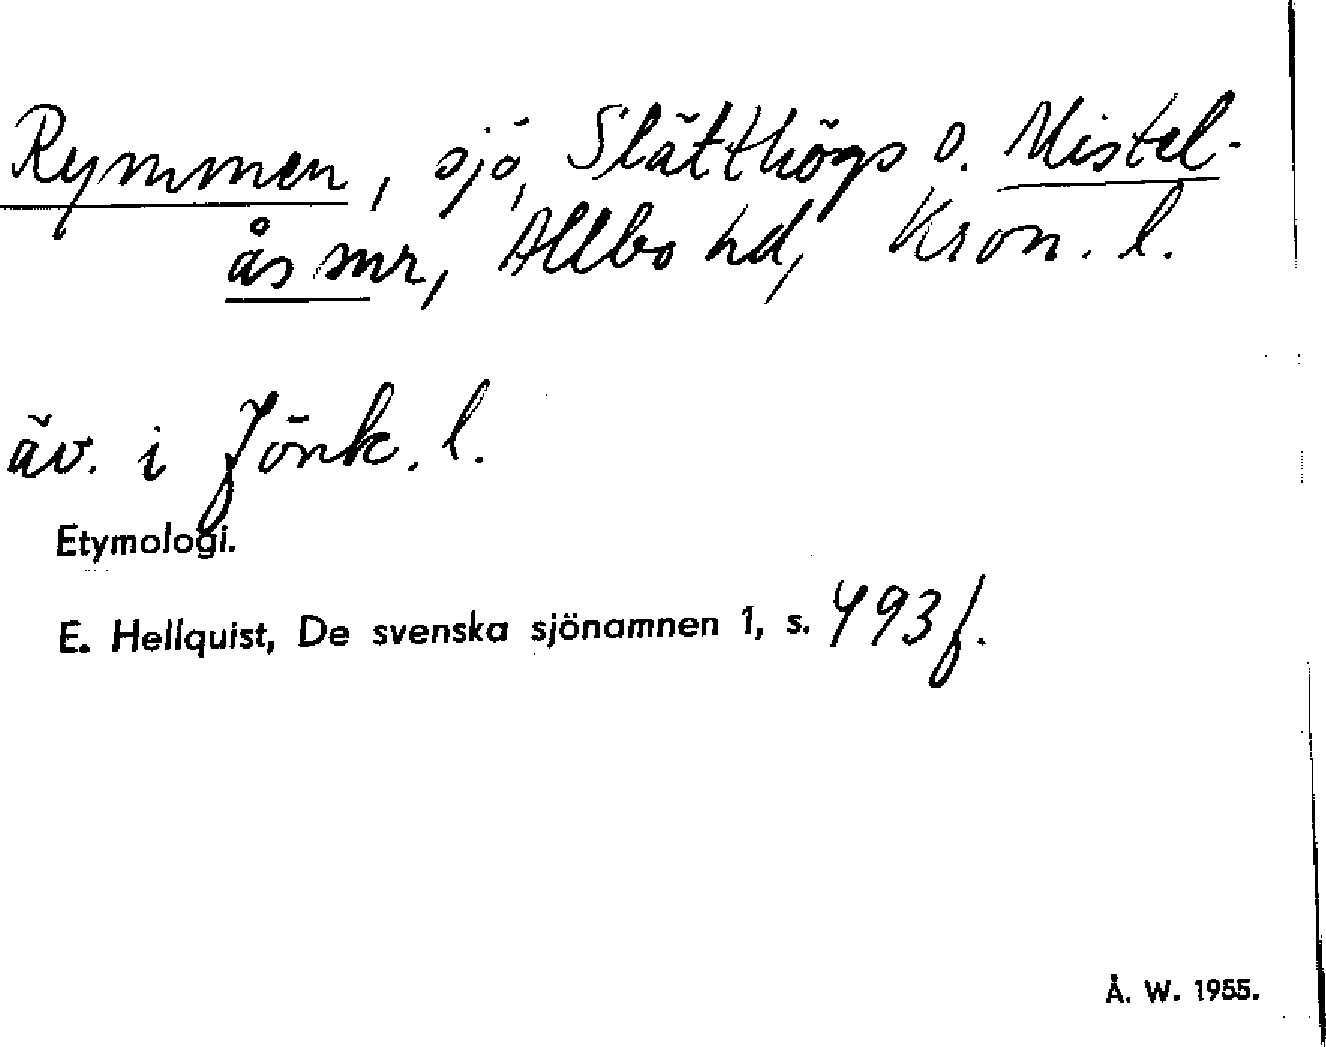 Rymmen, sjö, Slätthögs o. Mistel-
ås snr, Allbo hd, Kron. l.
äv. i Jönk. l.
Etymologi.
E. Hellquist, De svenska sjönamnen 1, s. 493 f.
Å. W. 1955.